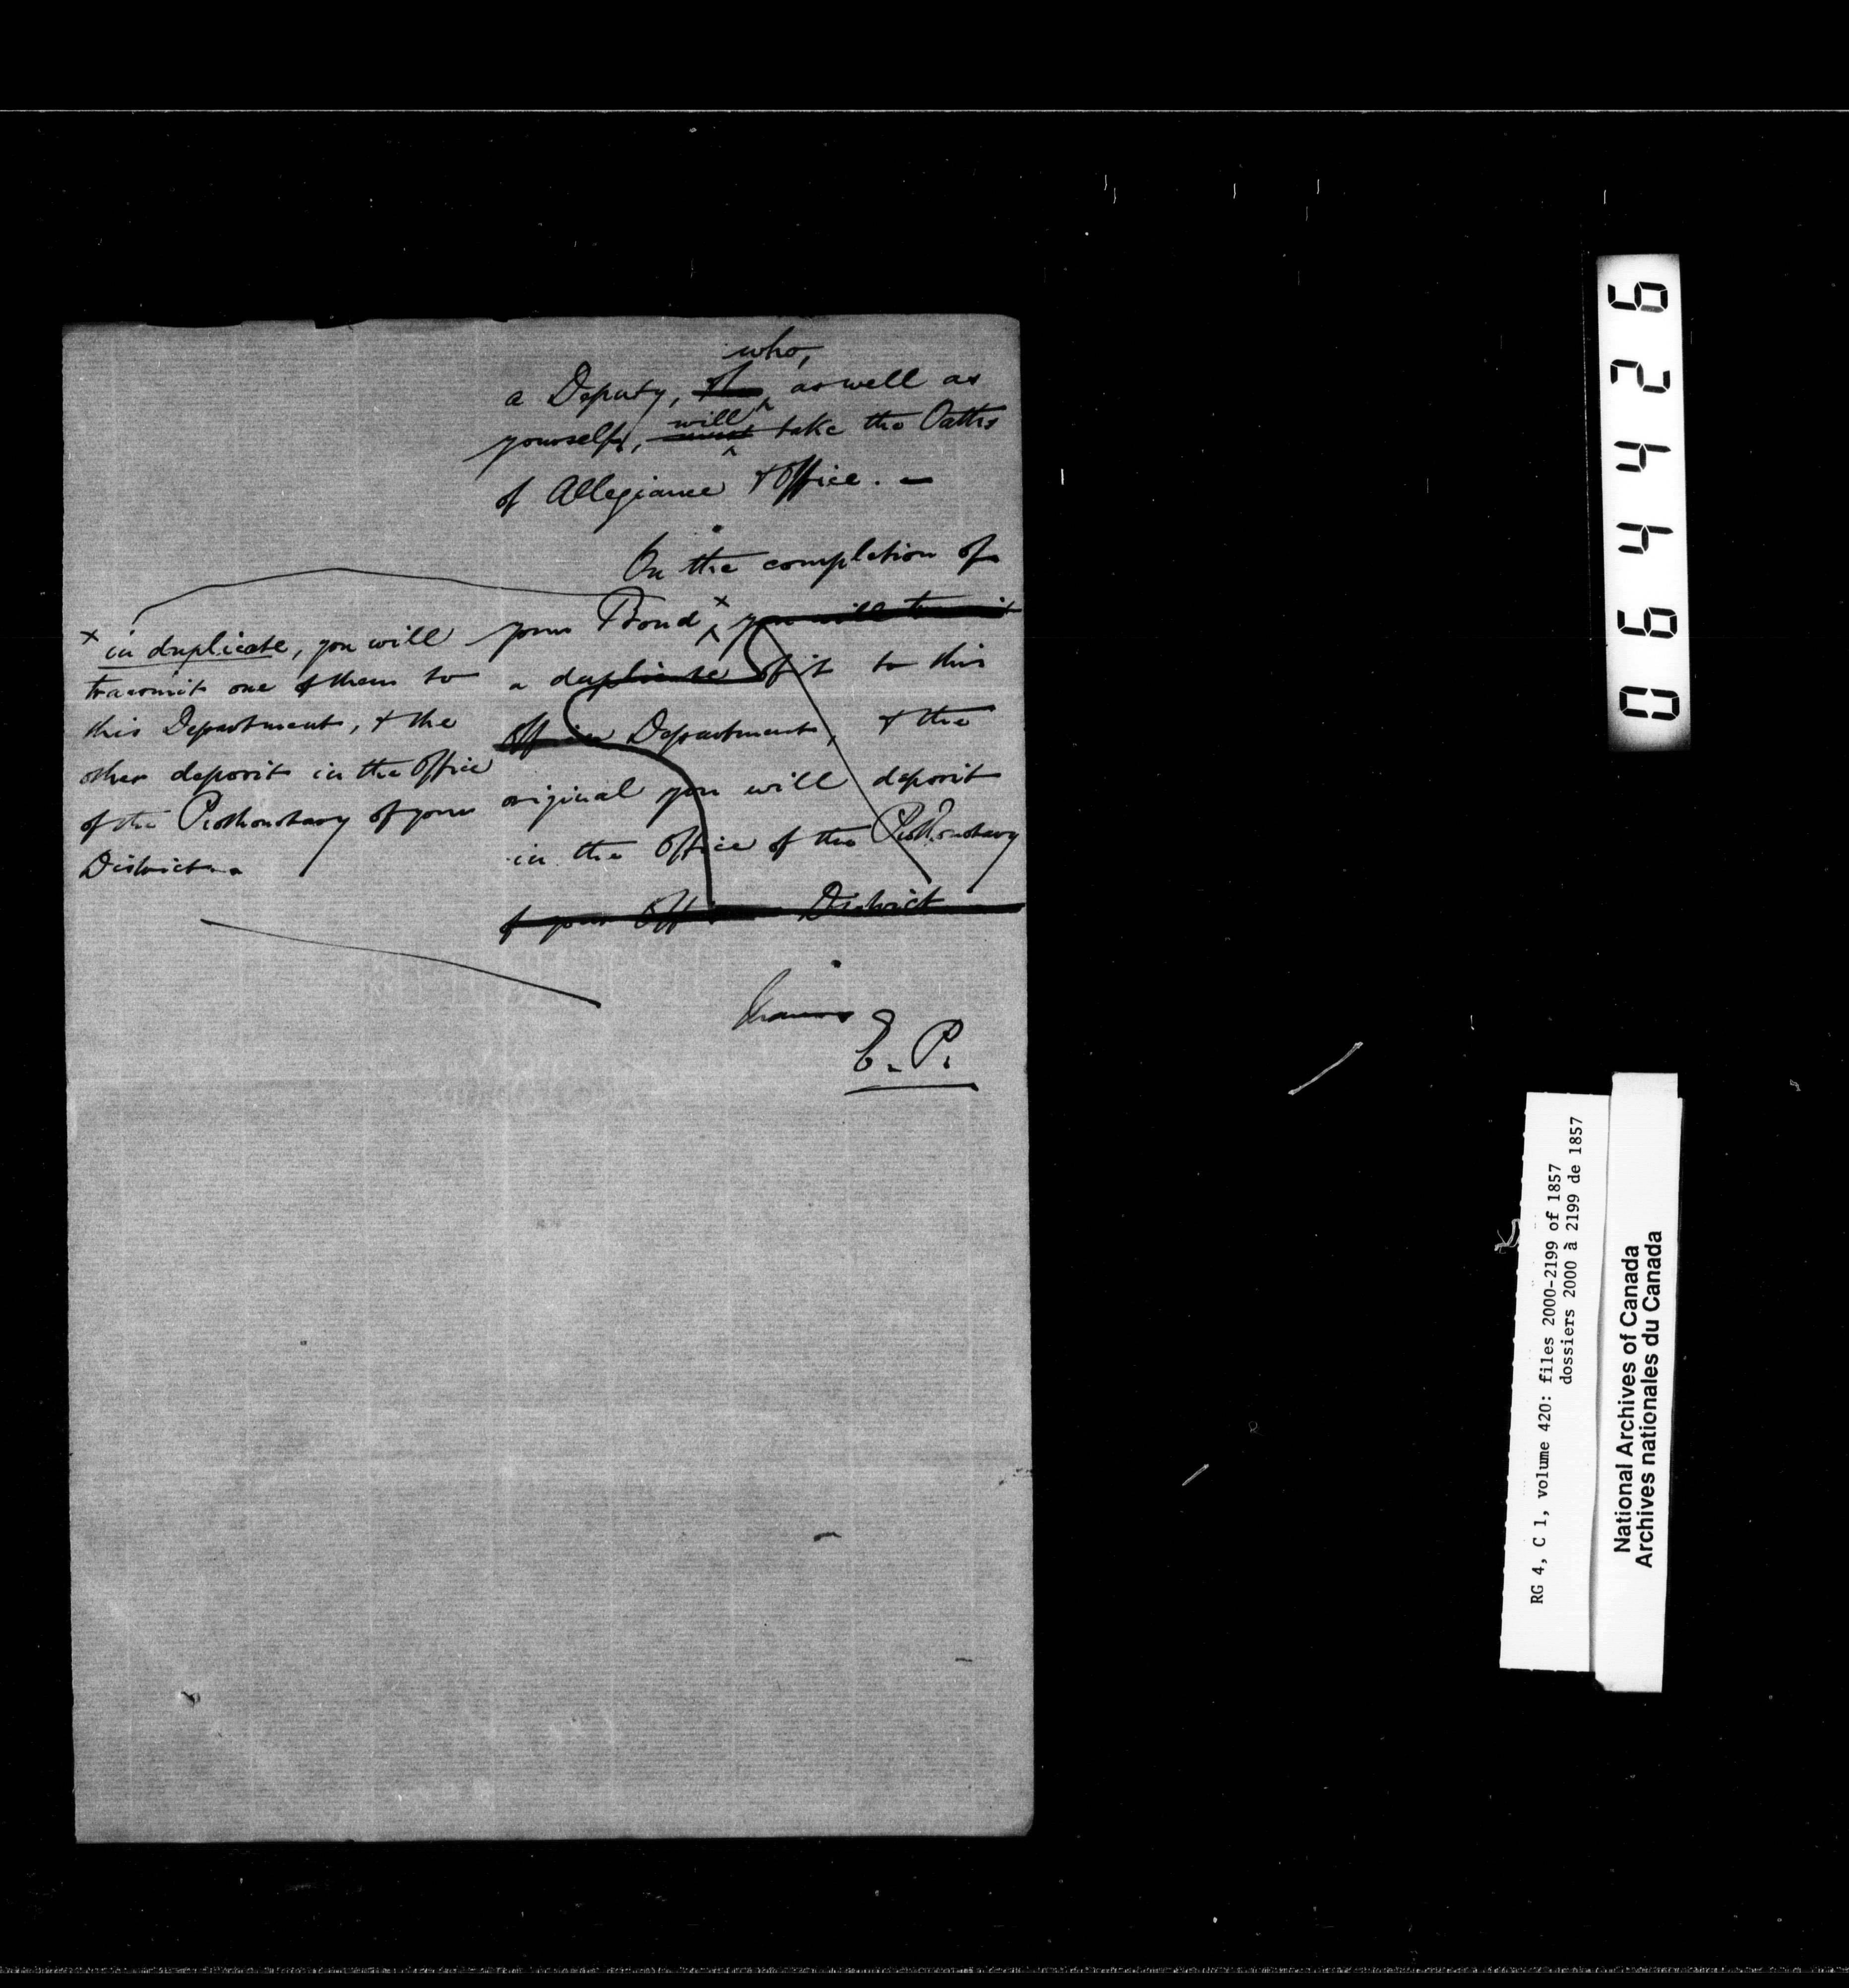 who,
a Deputy, of as well as
will
yourself, must take the Oaths
of Allegiance & Office. —
On the completion of
your Bond x you will transmit
a duplicate of it to this
Office Department, & the
original you will deposit
in the Office of the Prothonotary
of your Office District
x in duplicate, you will
transmit one of them to
this Department, & the
other deposit in the Office
of the Prothonotary of your
District.
E. P.
064426
RG 4, C 1, volume 420: files 2000-2199 of 1857
dossiers 2000 à 2199 de 1857
National Archives of Canada
Archives nationales du Canada